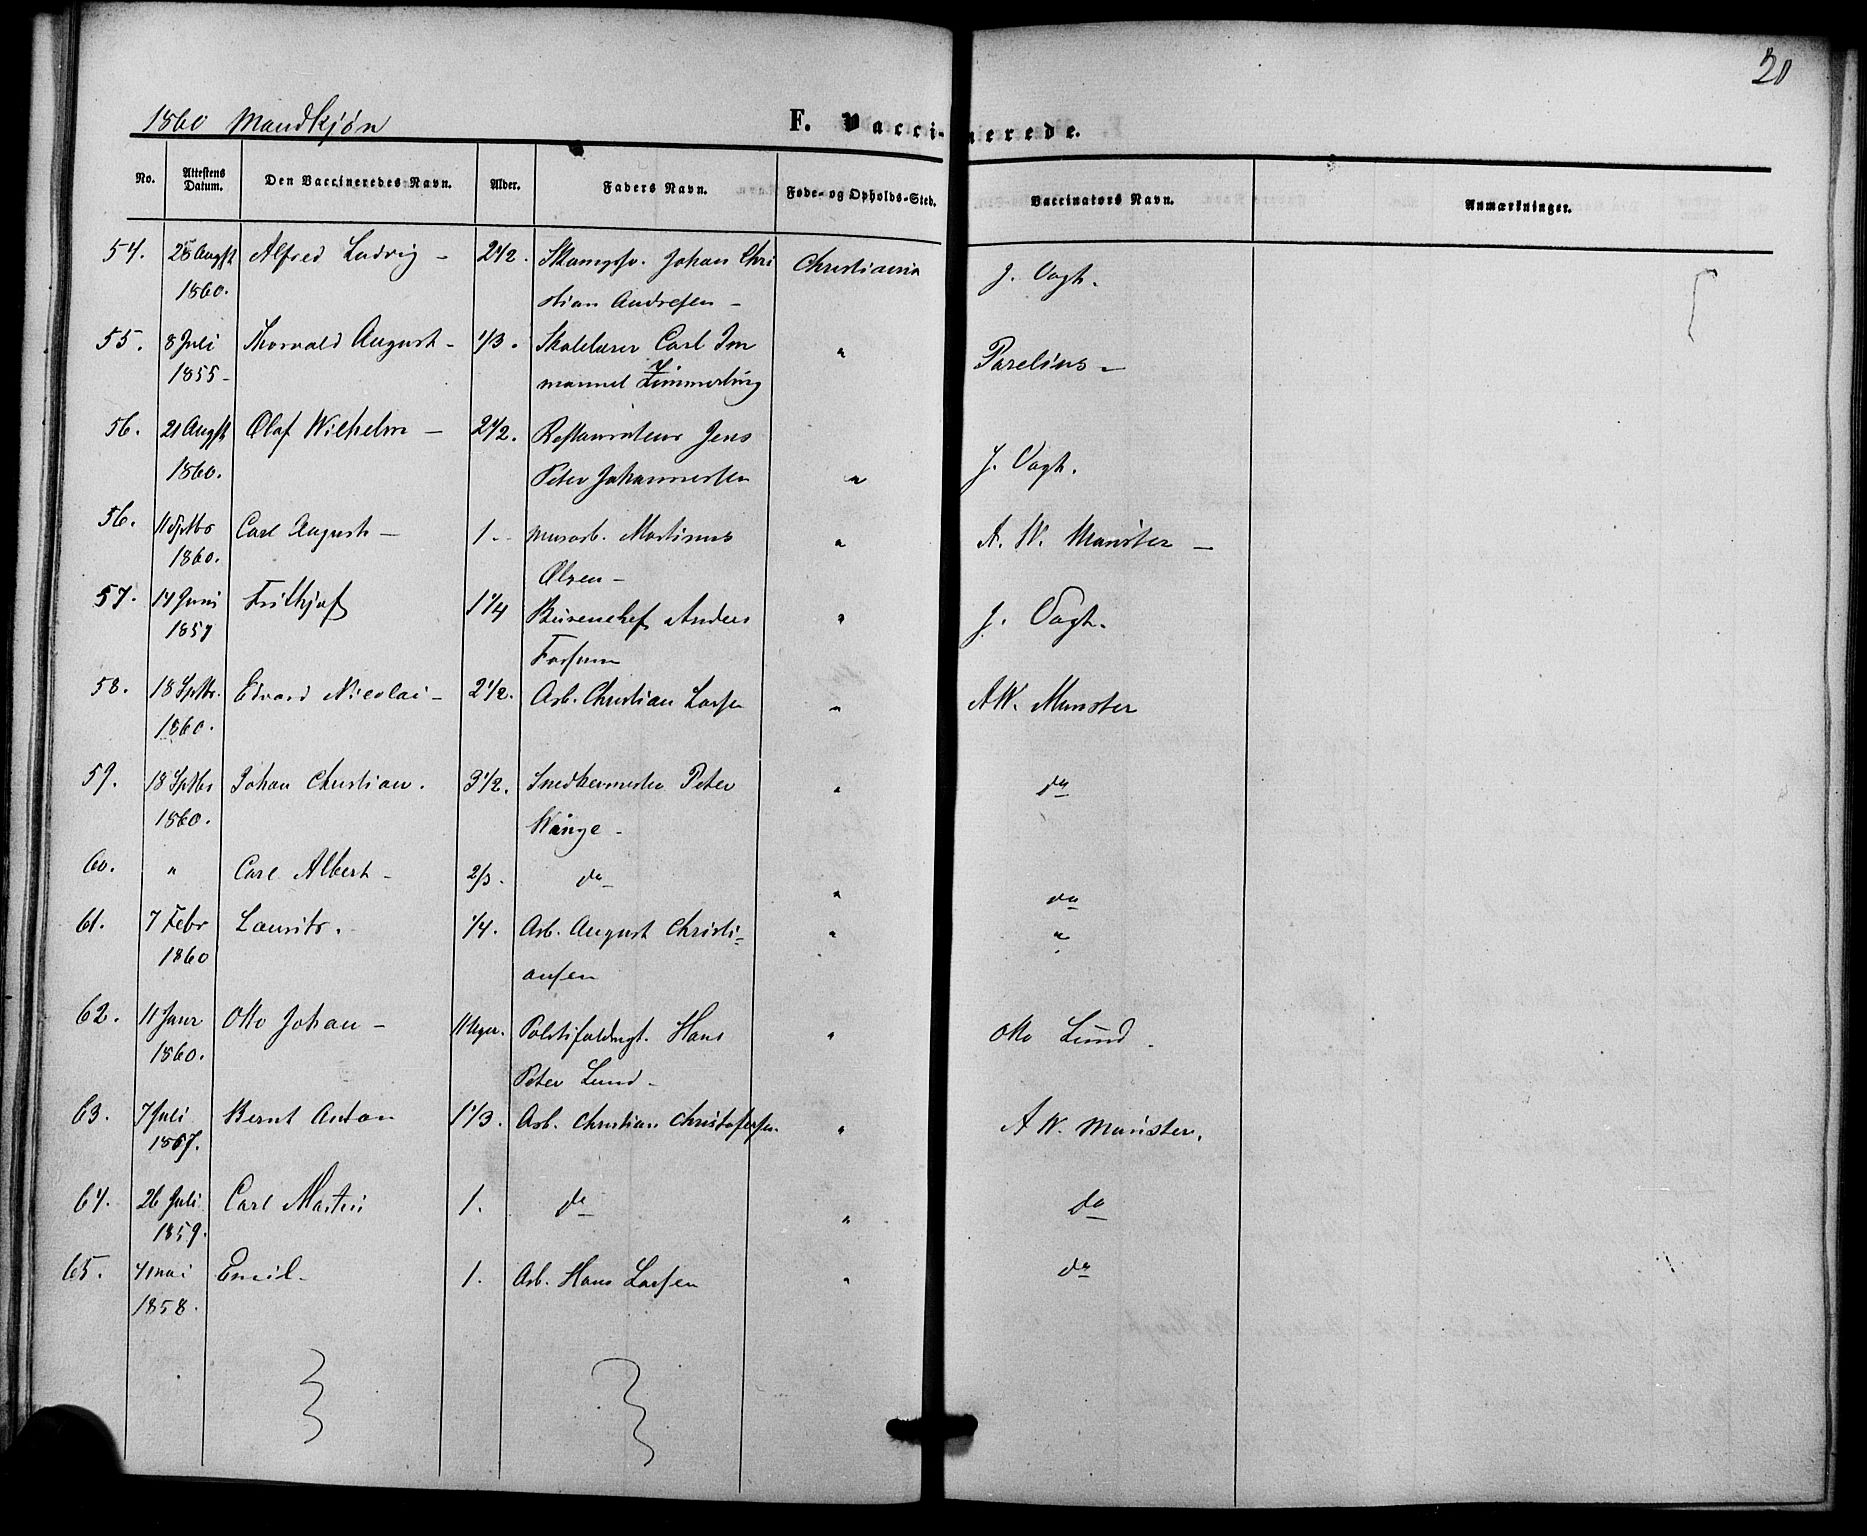 20
1860 Mandkjøn
F. Vaccinerede.
No. Attestens Datum. Den Vaccineredes Navn. Alder. Faders Navn. Føde- og Opholds-Sted. Vaccinators Navn. Anmærkninger.
54. 25 Augst Alfred Ludvig - 2 1/2. Johan Chri Christiania J. Vogt.
1860. stian Andresen -
55. 8 Juli Thorvald August - 1/3. Skolelærer Carl Im " Parelius -
1855 - manuel Zimmerling
56. 21 Augst Olaf Wilhelm - 2 1/2. Restaurateur Jens
1860. Peter Johannessen " J. Vogt.
56. 11 Sptbr Carl August - 1. - Murarb. Martinus " A. W. Münster -
1860. Olsen -
57. 14 Juni Frithjof 1 1/4 Bureauchef Anders " J. Vogt.
1857 Forsum
58. 18 Sptbr. Edvard Nicolai - 2 1/2. Arb. Christian Larsen " A W. Munster
1860.
59. 18 Sptbr Johan Christian. 3 1/2. Snedkermester Peter " do
1860. Wange -
60. " Carl Albert - 2/3. do " do
61. 7 Febr Laurits. 1/4. Arb. August Christi= " "
1860 ansen
62. 11 Janr Otto Johan - 11 Uger. Politifuldmgt. Hans " Otto Lund.
1860. Peter Lund -
63. 7 Juli Bernt Anton 1 1/3. Arb. Christian Christofersen. " A W. Münster.
1857.
64. 26 Juli Carl Martin 1. do " do
1859.
65. 4 mai Emil - 1. Arb. Hans Larsen " do
1858.